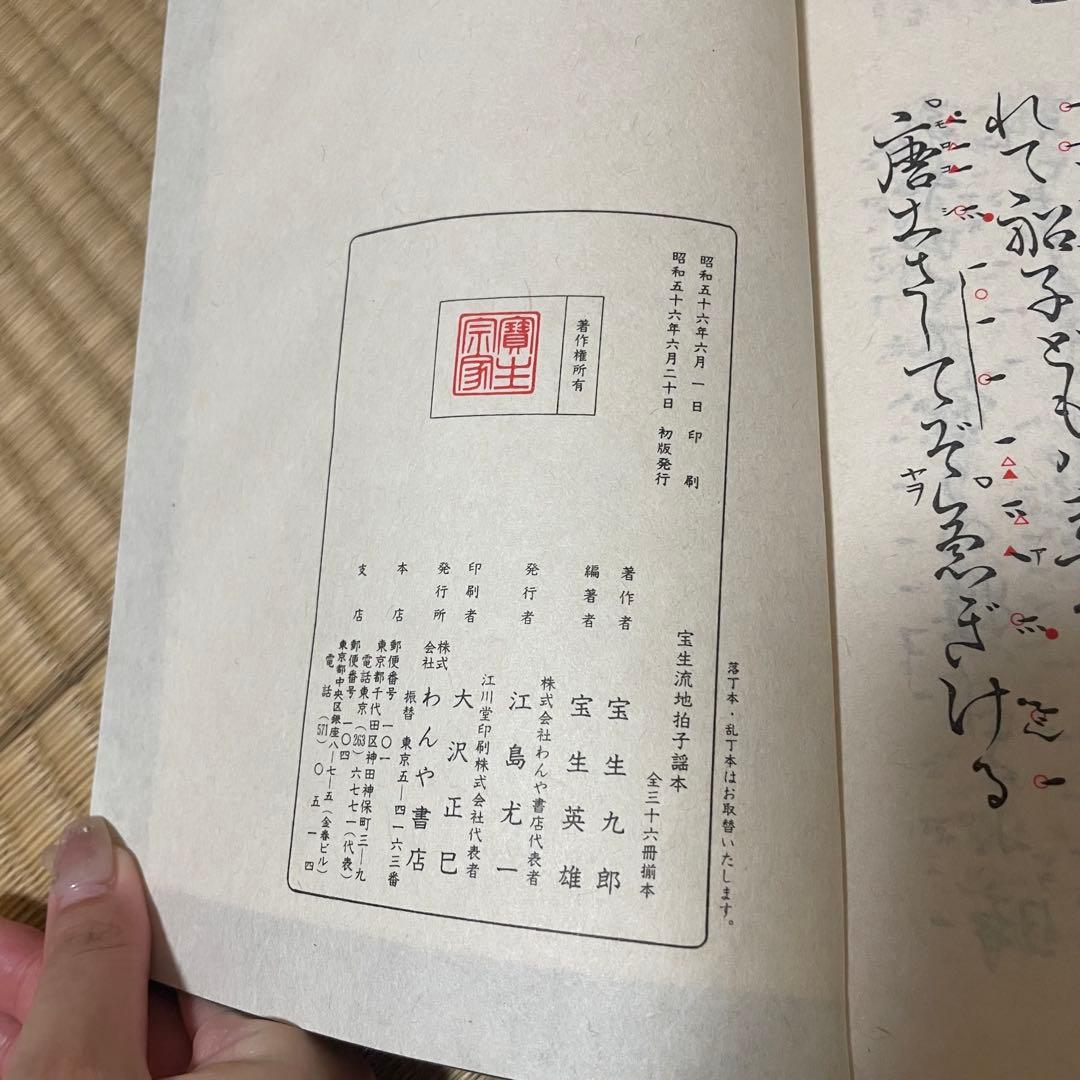 れて船子ども
唐土さしてぞ急ぎける
モロコシ
ヤヲ
昭和五十六年六月一日印刷
昭和五十六年六月二十日初版発行
著作権所有
寶生宗家
落丁本・乱丁本はお取替いたします。
宝生流地拍子謡本
全三十六冊揃本
著作者 宝生九郎
編著者 宝生英雄
発行者 株式会社わんや書店代表者
江島尤一
印刷者 江川堂印刷株式会社代表者
大沢正巳
発行所 株式会社わんや書店
振替 東京五―四一六三番
本店 郵便番号 一〇一
東京都千代田区神田神保町三―九
電話東京(263)六七七一(代表)
支店 郵便番号 一〇四
東京都中央区銀座八―七―五(金春ビル)
電話(571)〇五一四